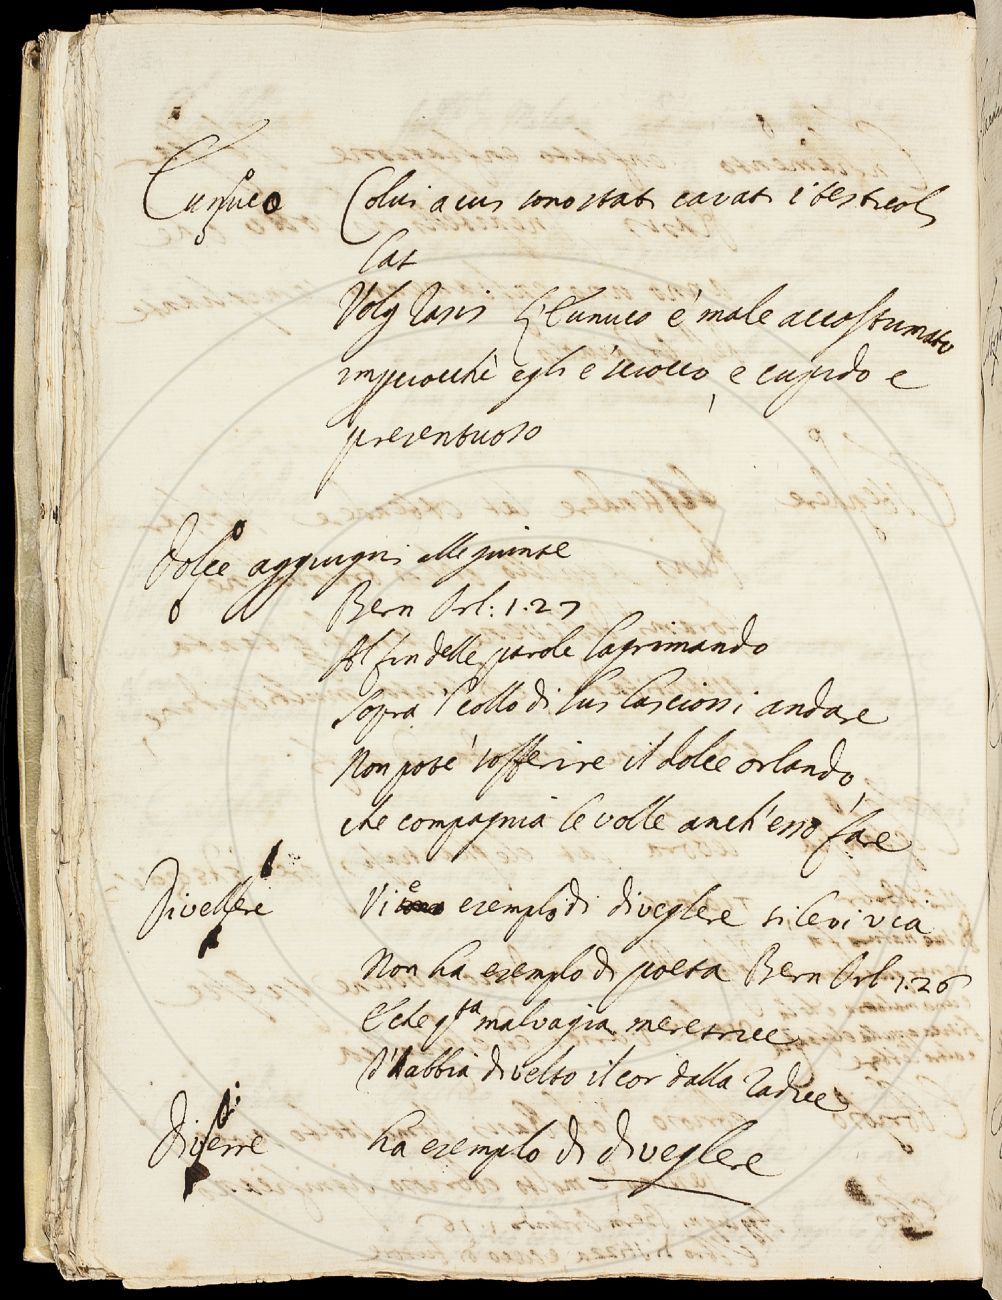 Eunuco Colui a cui sono stati cavati i testicoli
Lat
Volg Rasis L'Eunuco è male accostumato
imperocchè egli è sciocco, e cupido e
presentuoso
Dolce aggiugni alle giunte
Bern Orl: 1.27
Al fin delle parole lagrimando
Sopra 'l collo di lui lasciossi andare
Non poté sofferire il dolce orlando,
che compagnia le volle anch'esso fare
Divellere Vi è esemplo di diveglere si levi via
Non ha esemplo di poeta Bern Orl 1.26
E che q.sta malvagia meretrice
M'abbia divelto il cor dalla radice
Diverre ha esemplo di diveglere